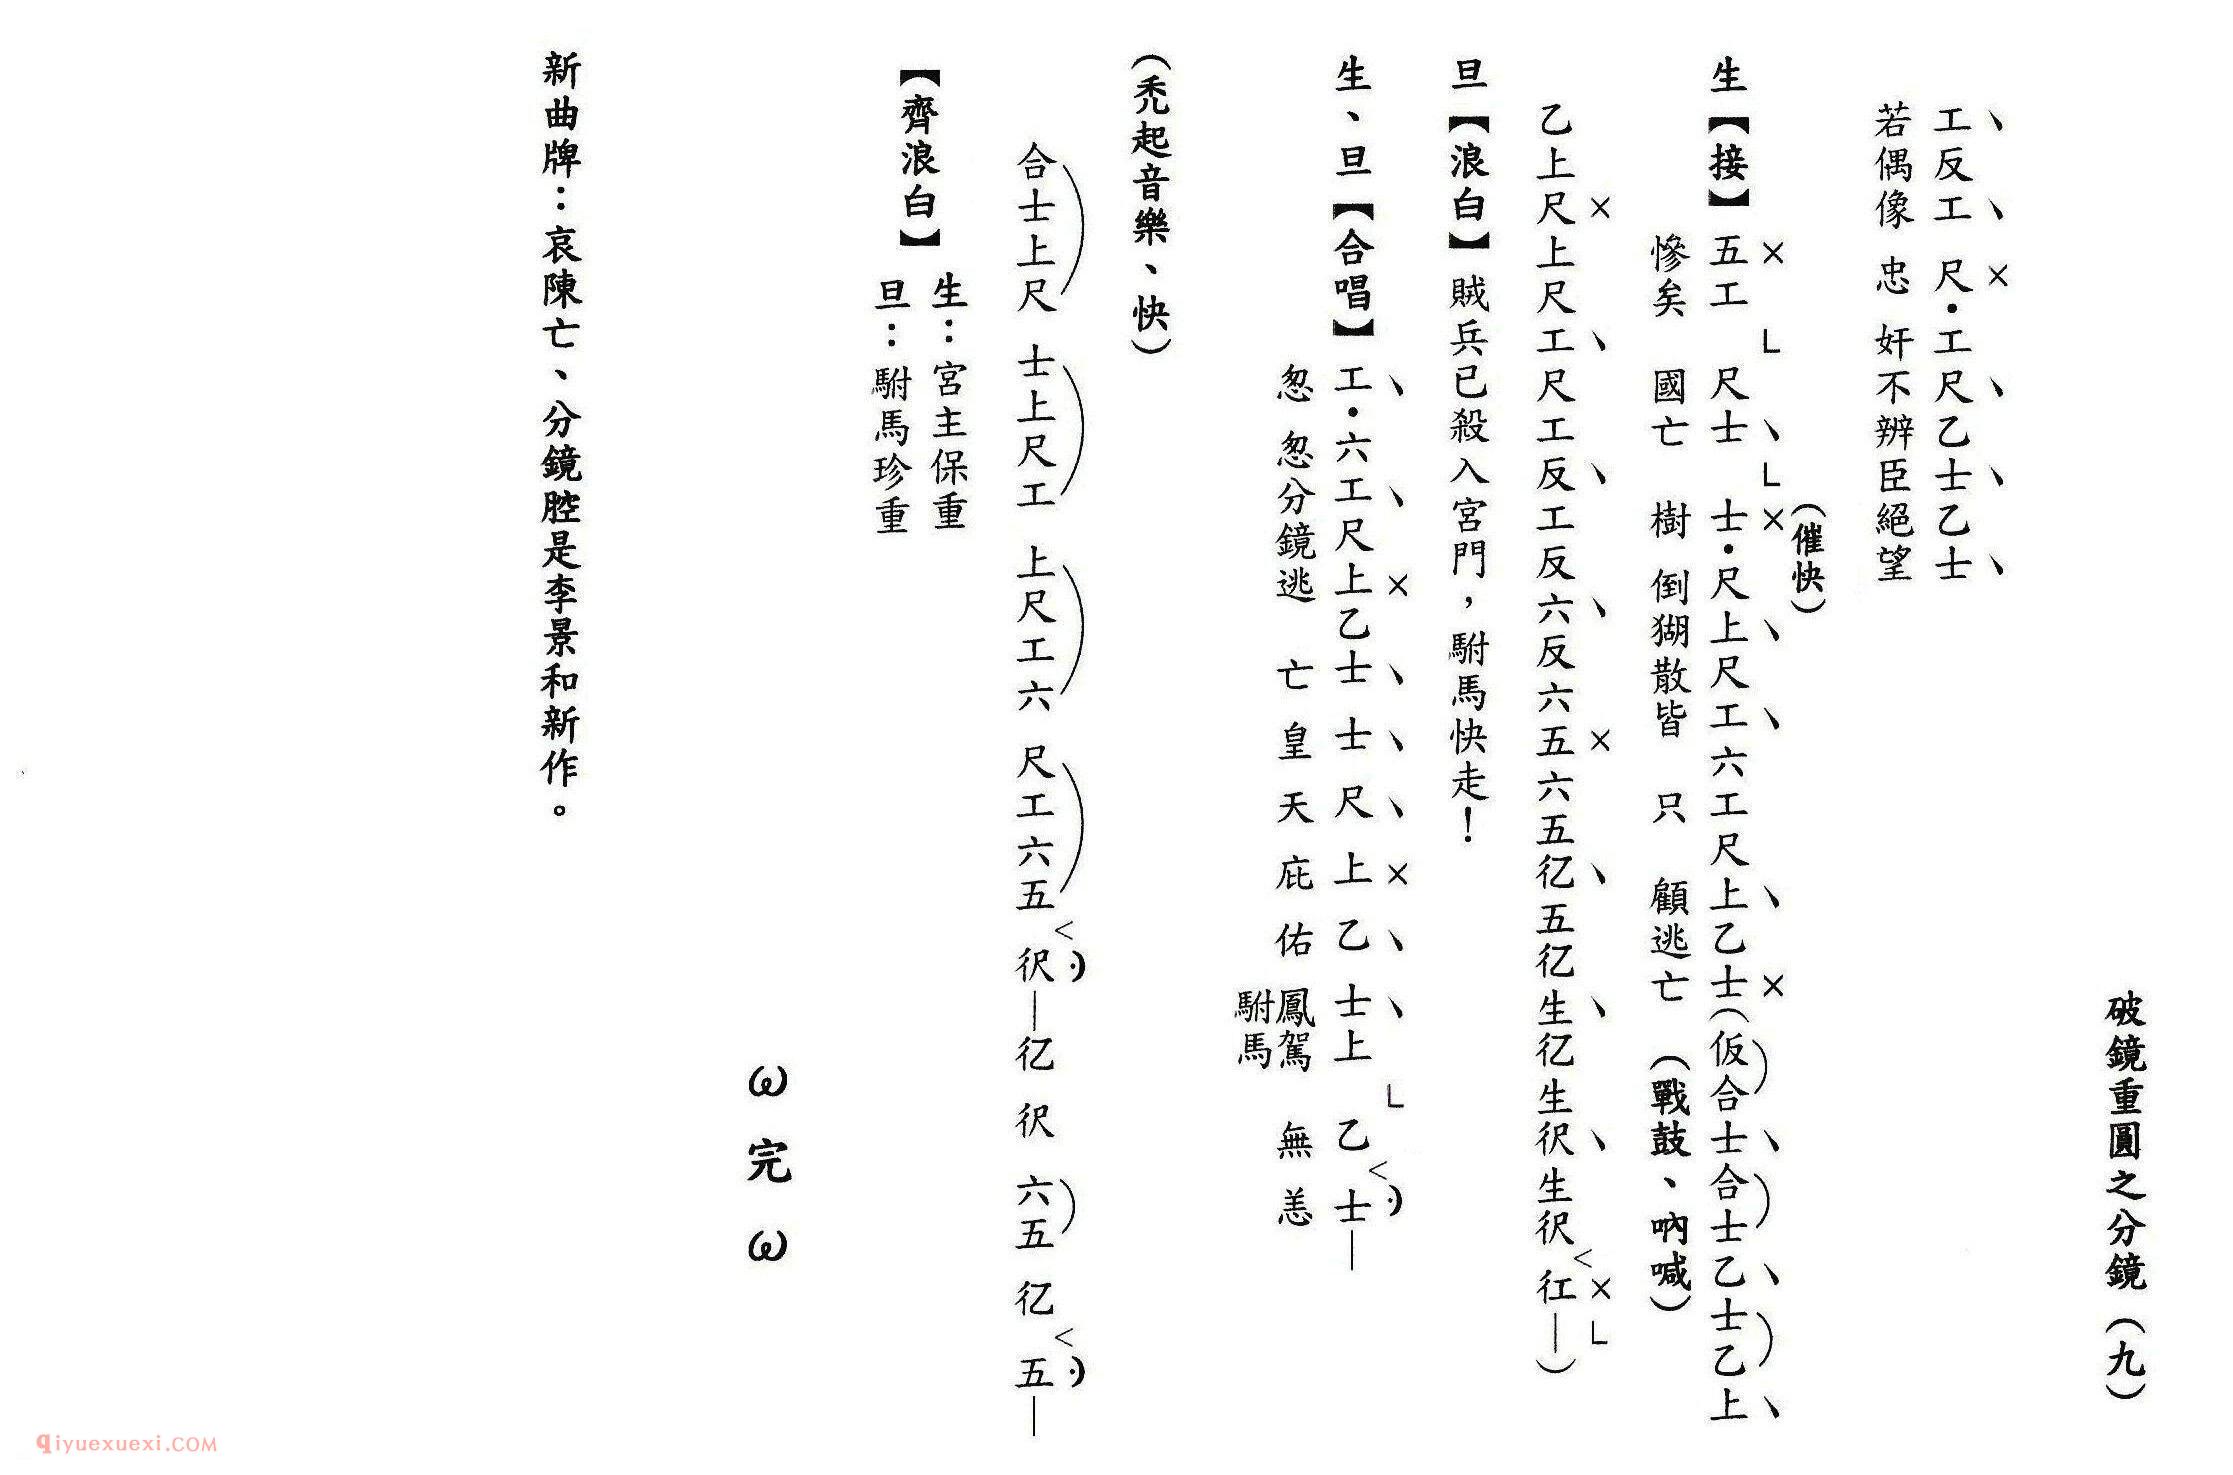 破鏡重圓之分鏡（九）
工反工尺•工尺乙士乙士
若偶像忠奸不辨臣絕望
（催快）
生【接】五工尺士士•尺上尺工六工尺上乙士（仮合士合士乙士乙上
慘矣國亡樹倒猢散皆只顧逃亡（戰鼓、吶喊）
乙上尺上尺工尺工反工反六反六五六五亿五亿生亿生伬生伬仜—）
旦【浪白】賊兵已殺入宮門，駙馬快走！
生、旦【合唱】工•六工尺上乙士士尺上乙士上乙士—
怱怱分鏡逃亡皇天庇佑鳳駕無恙
駙馬
（禿起音樂、快）
合士上尺士上尺工上尺工六尺工六五伬—亿伬六五亿五—
【齊浪白】生：宮主保重
旦：駙馬珍重
ω完ω
新曲牌：哀陳亡、分鏡腔是李景和新作。
qiyuexuexi.COM